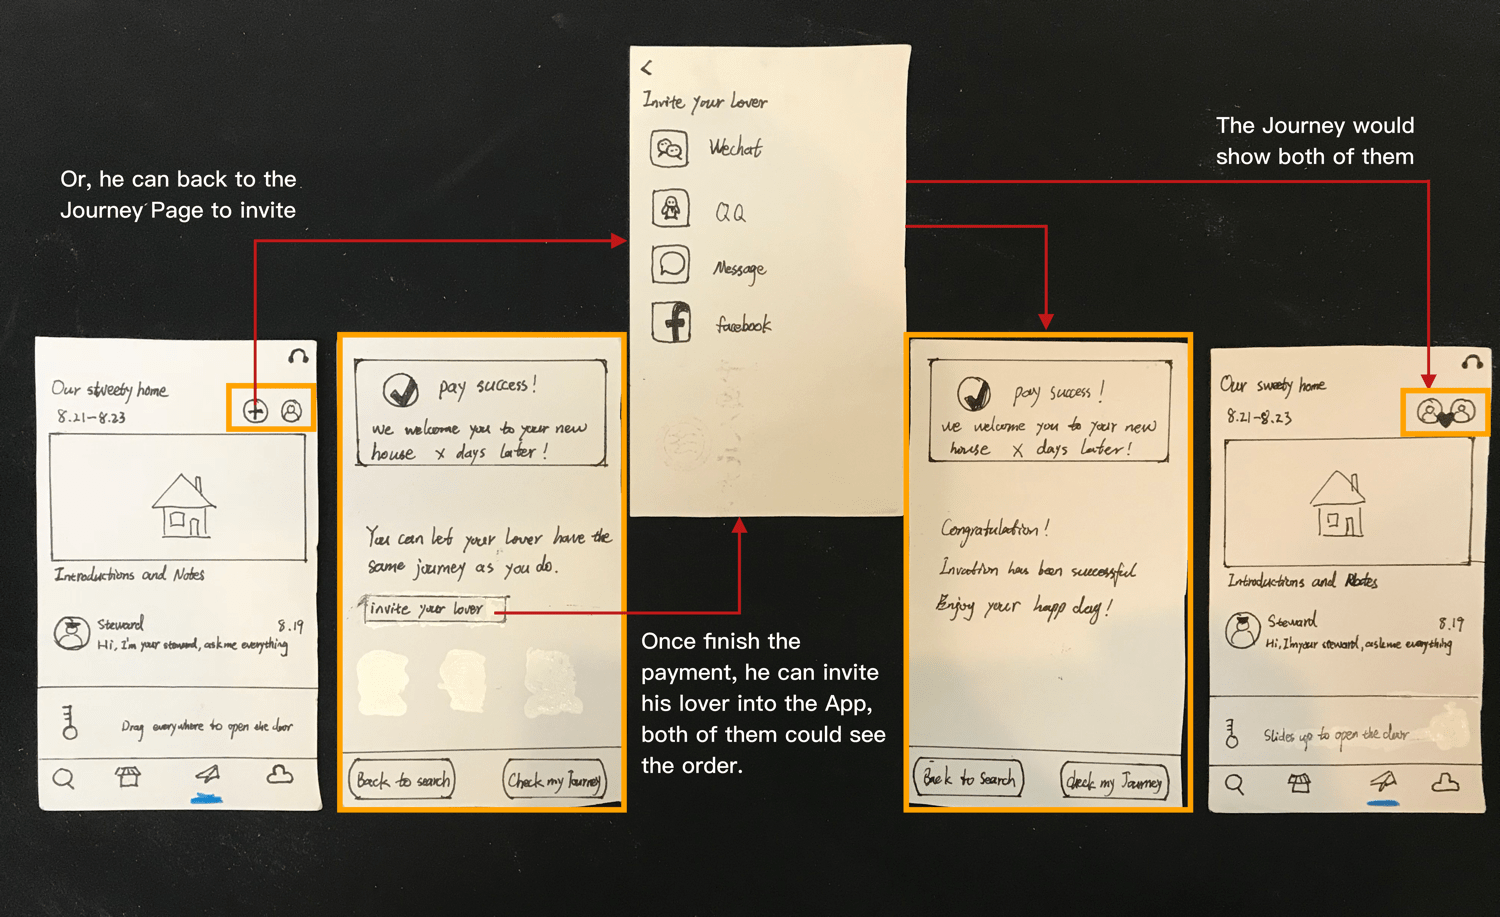 Or, he can back to the
Journey Page to invite
Our sweety home
8.21-8.23
Introductions and Notes
Steward
8.19
Hi, I'm your steward, ask me everything
Drag everywhere to open the door
pay success!
we welcome you to your new
house x days later!
You can let your lover have the
same journey as you do.
invite your lover
Back to search
Check my Journey
Invite your lover
Wechat
QQ
Message
facebook
Once finish the
payment, he can invite
his lover into the App,
both of them could see
the order.
pay success!
we welcome you to your new
house x days later!
Congratulation!
Invation has been successful
Enjoy your happ day!
Back to search
Check my Journey
The Journey would
show both of them
Our sweety home
8.21-8.23
Introductions and Notes
Steward
8.19
Hi, I'm your steward, ask me everything
Slides up to open the door